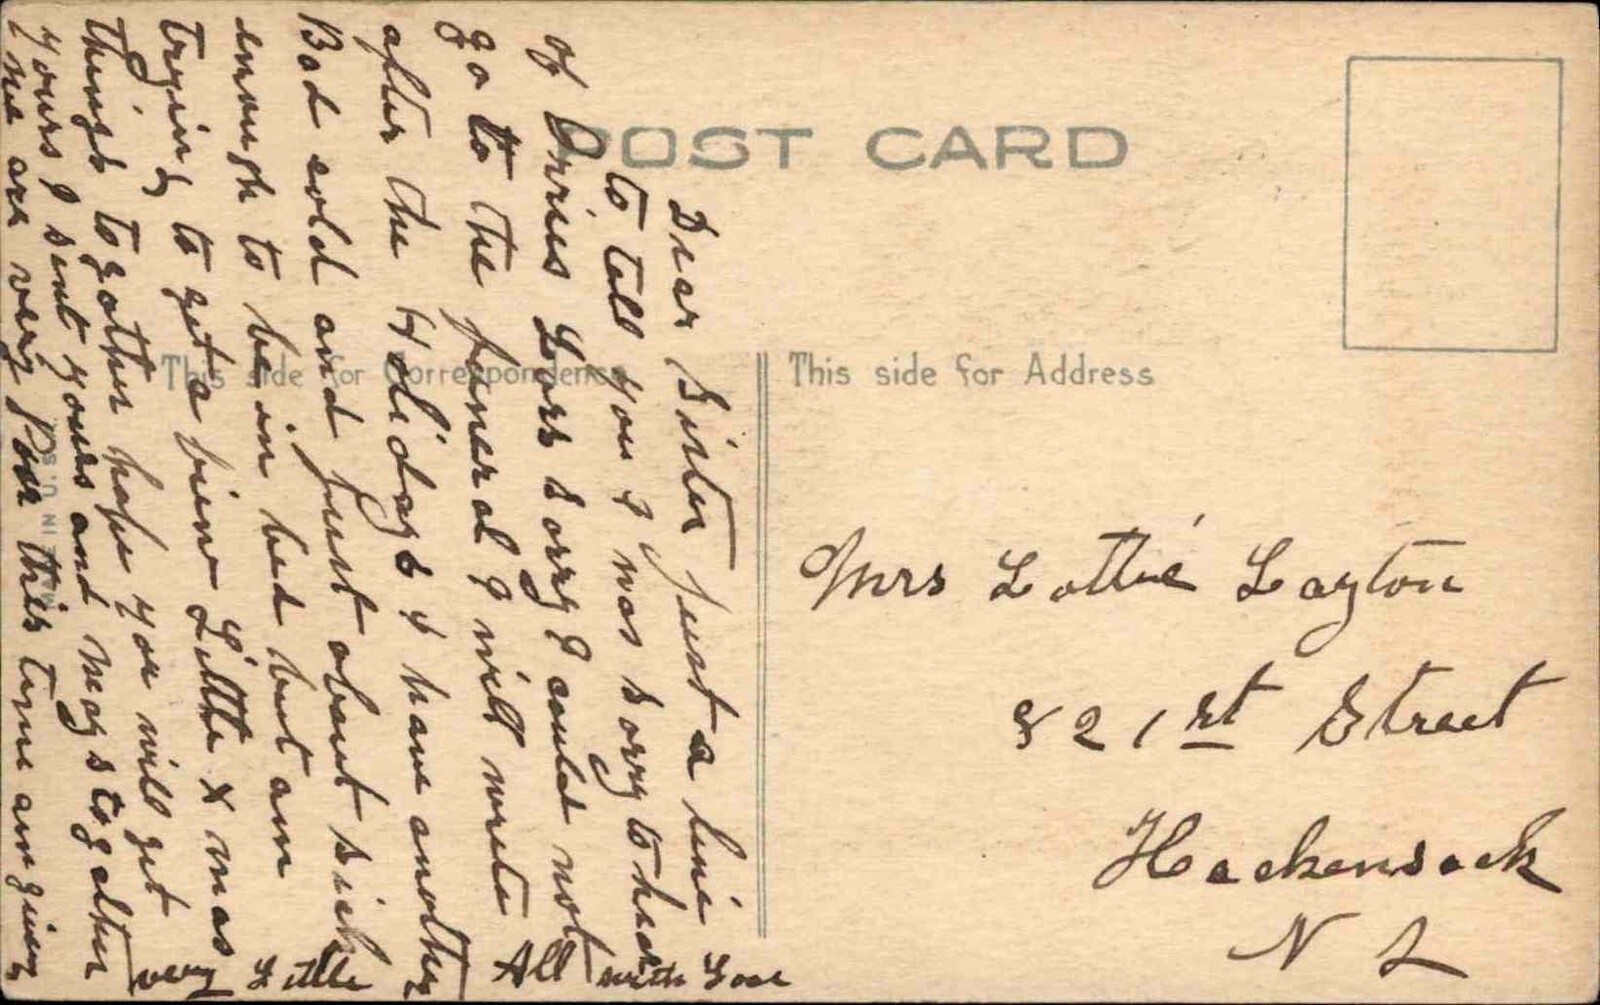 POST CARD
This side for Correspondence
This side for Address
Dear Sister Just a line
to tell you I was sorry to hear
of Loss sorry I could not
go to the funeral I will write
after the Holidays I have another
Bad cold and Just about sick
enough to be in bed but am
trying to get a few Little Xmas
things togather hope you will get
yours I sent yours and togather
we are very Poor this time am giving
very Little All with Love
Mrs Lottie Layton
821st Street
Hackensack
N J